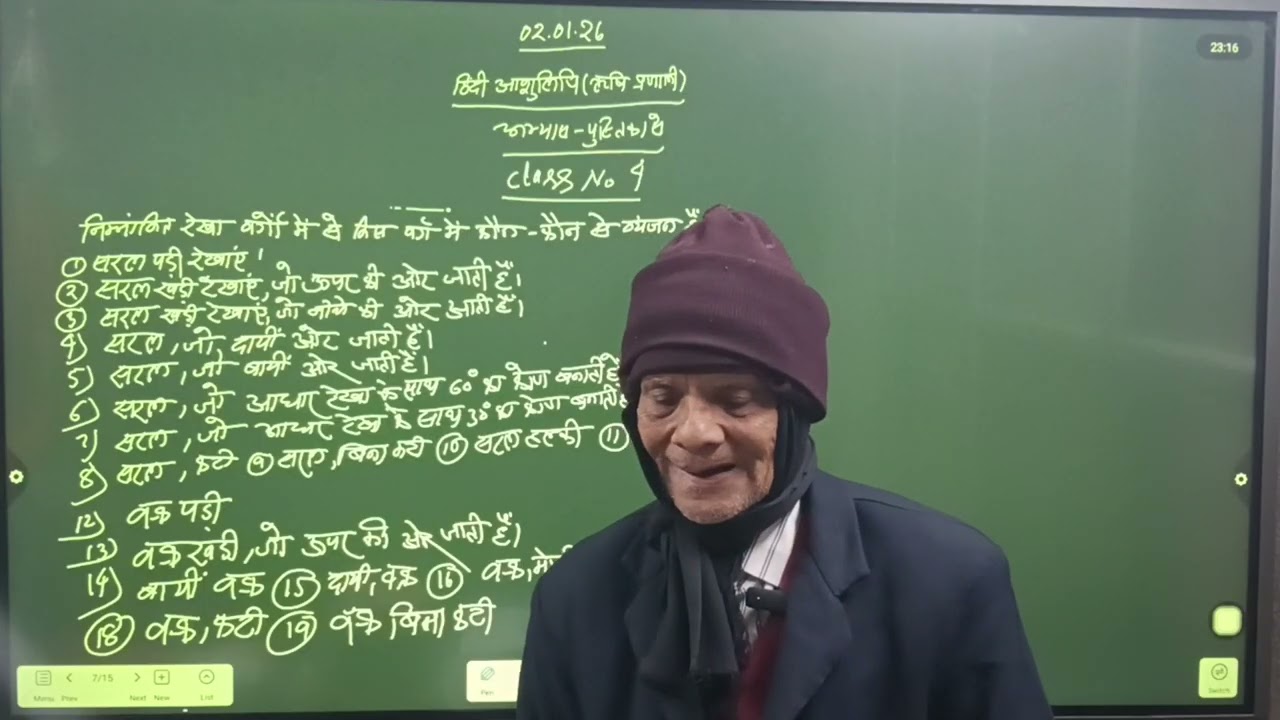 02.01.26
23:16
हिंदी आशुलिपि (ऋषि प्रणाली)
अभ्यास-पुस्तिका से
Class No 4
निम्नांकित रेखा वर्गों में से किस वर्ग में कौन-कौन से व्यंजन
① सरल पड़ी रेखाएं
② सरल खड़ी रेखाएं, जो ऊपर की ओर जाती हैं।
③ सरल खड़ी रेखाएं, जो नीचे की ओर आती हैं।
4) सरल, जो, दायीं ओर जाती हैं।
5) सरल, जो बायीं ओर जाती हैं।
6) सरल, जो आधार रेखा के साथ 60° का कोण बनाती हैं
7) सरल, जो आधार रेखा के साथ 30° का कोण बनाती
8) सरल, कटी ⑨ सरल, बिना कटी ⑩ सरल हल्की ⑪
12) वक्र पड़ी
13) वक्र खड़ी, जो ऊपर की ओर जाती हैं।
14) बायीं वक्र ⑮ दायीं वक्र ⑯ वक्र,
⑱ वक्र, कटी ⑲ वक्र बिना कटी
Menu Prev 7/15 Next New List
Pen
Switch